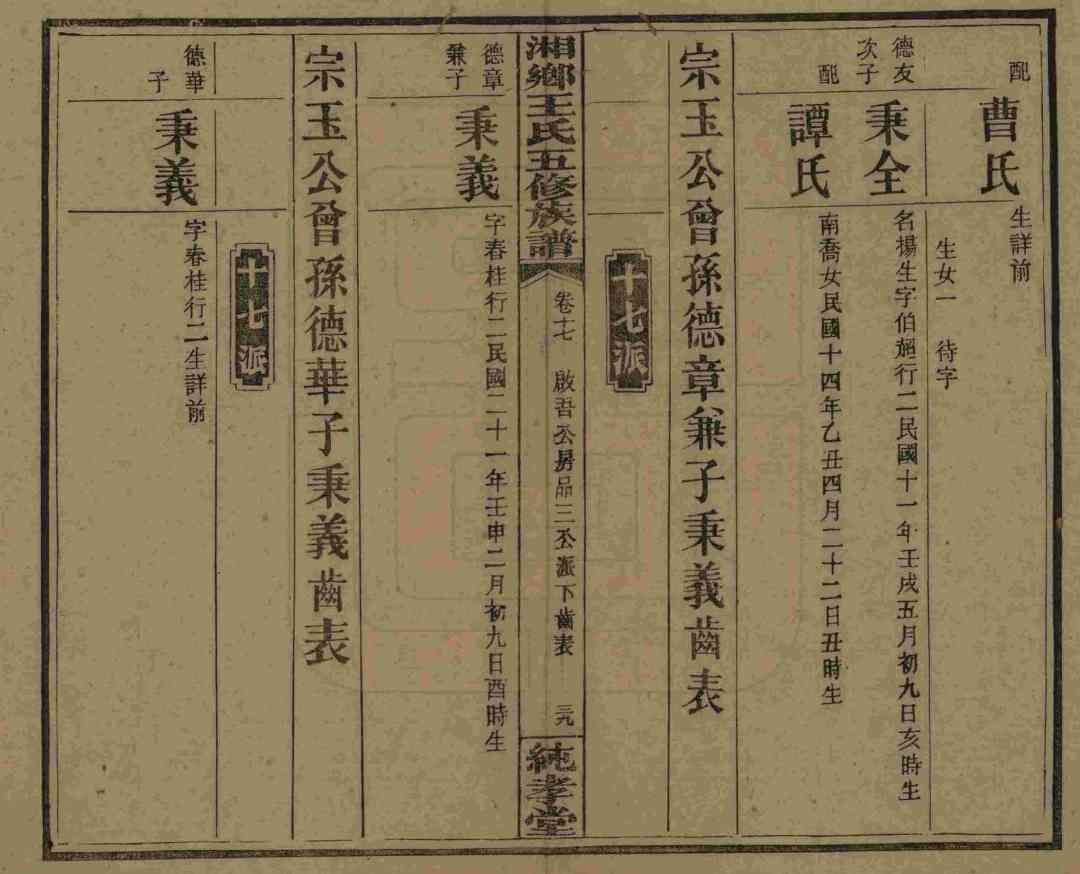 配
曹氏
生詳前
生女一 待字
德友
次子
秉全
名揚生字伯施行二民國十一年壬戌五月初九日亥時生
配
譚氏
南喬女民國十四年乙丑四月二十二日丑時生
宗玉公曾孫德章兼子秉義齒表
十七派
湘鄉王氏五修族譜
卷十七 啟吾公房品三公派下齒表 三九
純孝堂
德章
兼子
秉義
字春桂行二民國二十一年壬申二月初九日酉時生
宗玉公曾孫德華子秉義齒表
十七派
德華
子
秉義
字春桂行二生詳前